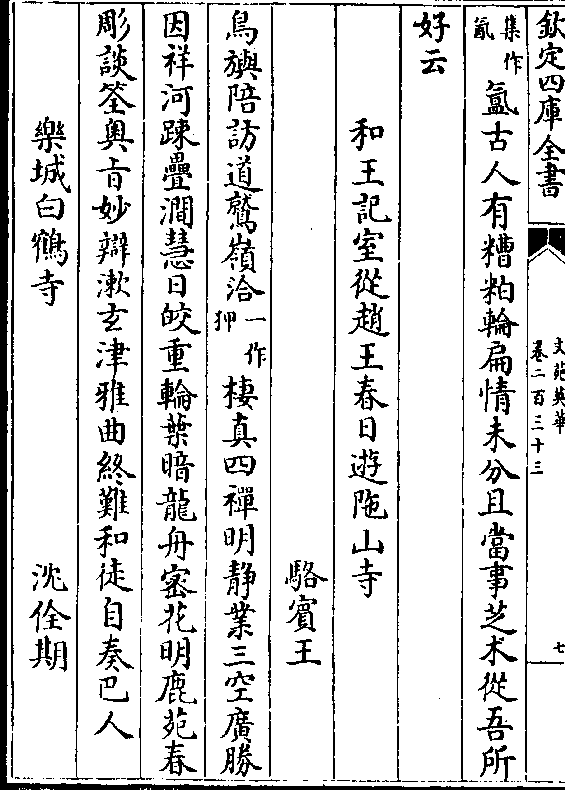 欽定四庫全書
文苑英華
卷二百三十三
七
集作
氣
氳古人有糟粕輪扁情未分且當事芝术從吾所
好云
和王記室從趙王春日遊陁山寺
駱賓王
鳥旟陪訪道鷲嶺洽一作
狎棲真四禪明静業三空廣勝
因祥河踈疊澗慧日皎重輪葉暗龍舟密花明鹿苑春
彫談筌奥旨妙辯漱玄津雅曲終難和徒自奏巴人
樂城白鶴寺
沈佺期